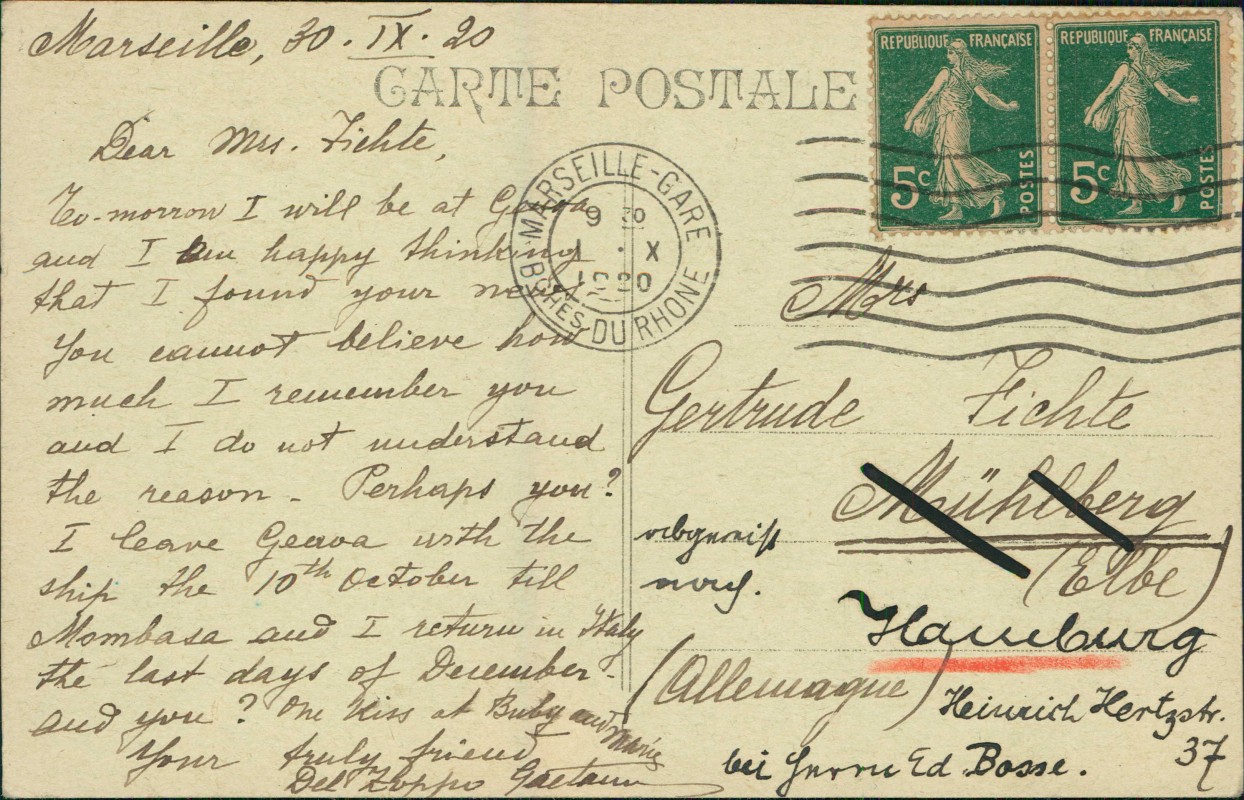 Marseille, 30. IX. 20
CARTE POSTALE
Dear Mrs. Fichte,
To-morrow I will be at Genova
and I am happy thinking
that I found your news
You cannot believe how
much I remember you
and I do not understand
the reason - Perhaps you?
I leave Genova with the
ship the 10th October till
Mombasa and I return in Italy
the last days of December -
and you? One kiss at Buby and Maries
Your truly friend
Del Zoppo Gaetano
REPUBLIQUE FRANÇAISE
5c POSTES
REPUBLIQUE FRANÇAISE
5c POSTES
MARSEILLE-GARE
9 30
1 · X
1920
BCHES-DU RHONE
Mrs
Gertrude Fichte
Mühlberg
(Elbe)
abgereist
nach.
Hamburg
(Allemagne)
Heinrich Hertzstr.
37
bei Herrn Ed Bosse.